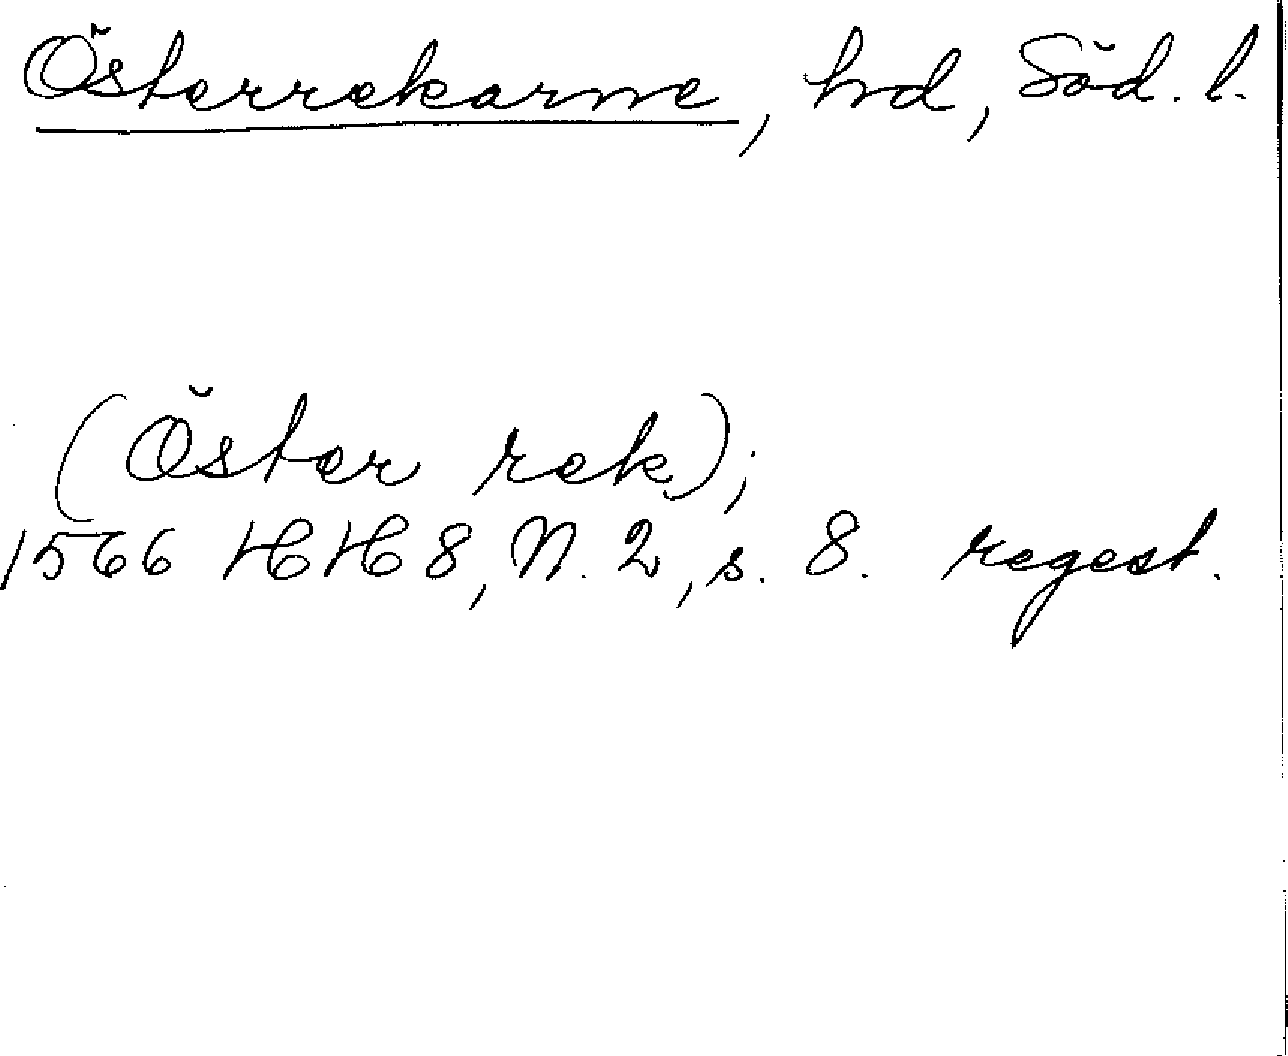 Österrekarne, hd, Söd. l.
(Öster rek);
1566 HH 8, N. 2, s. 8. regest.